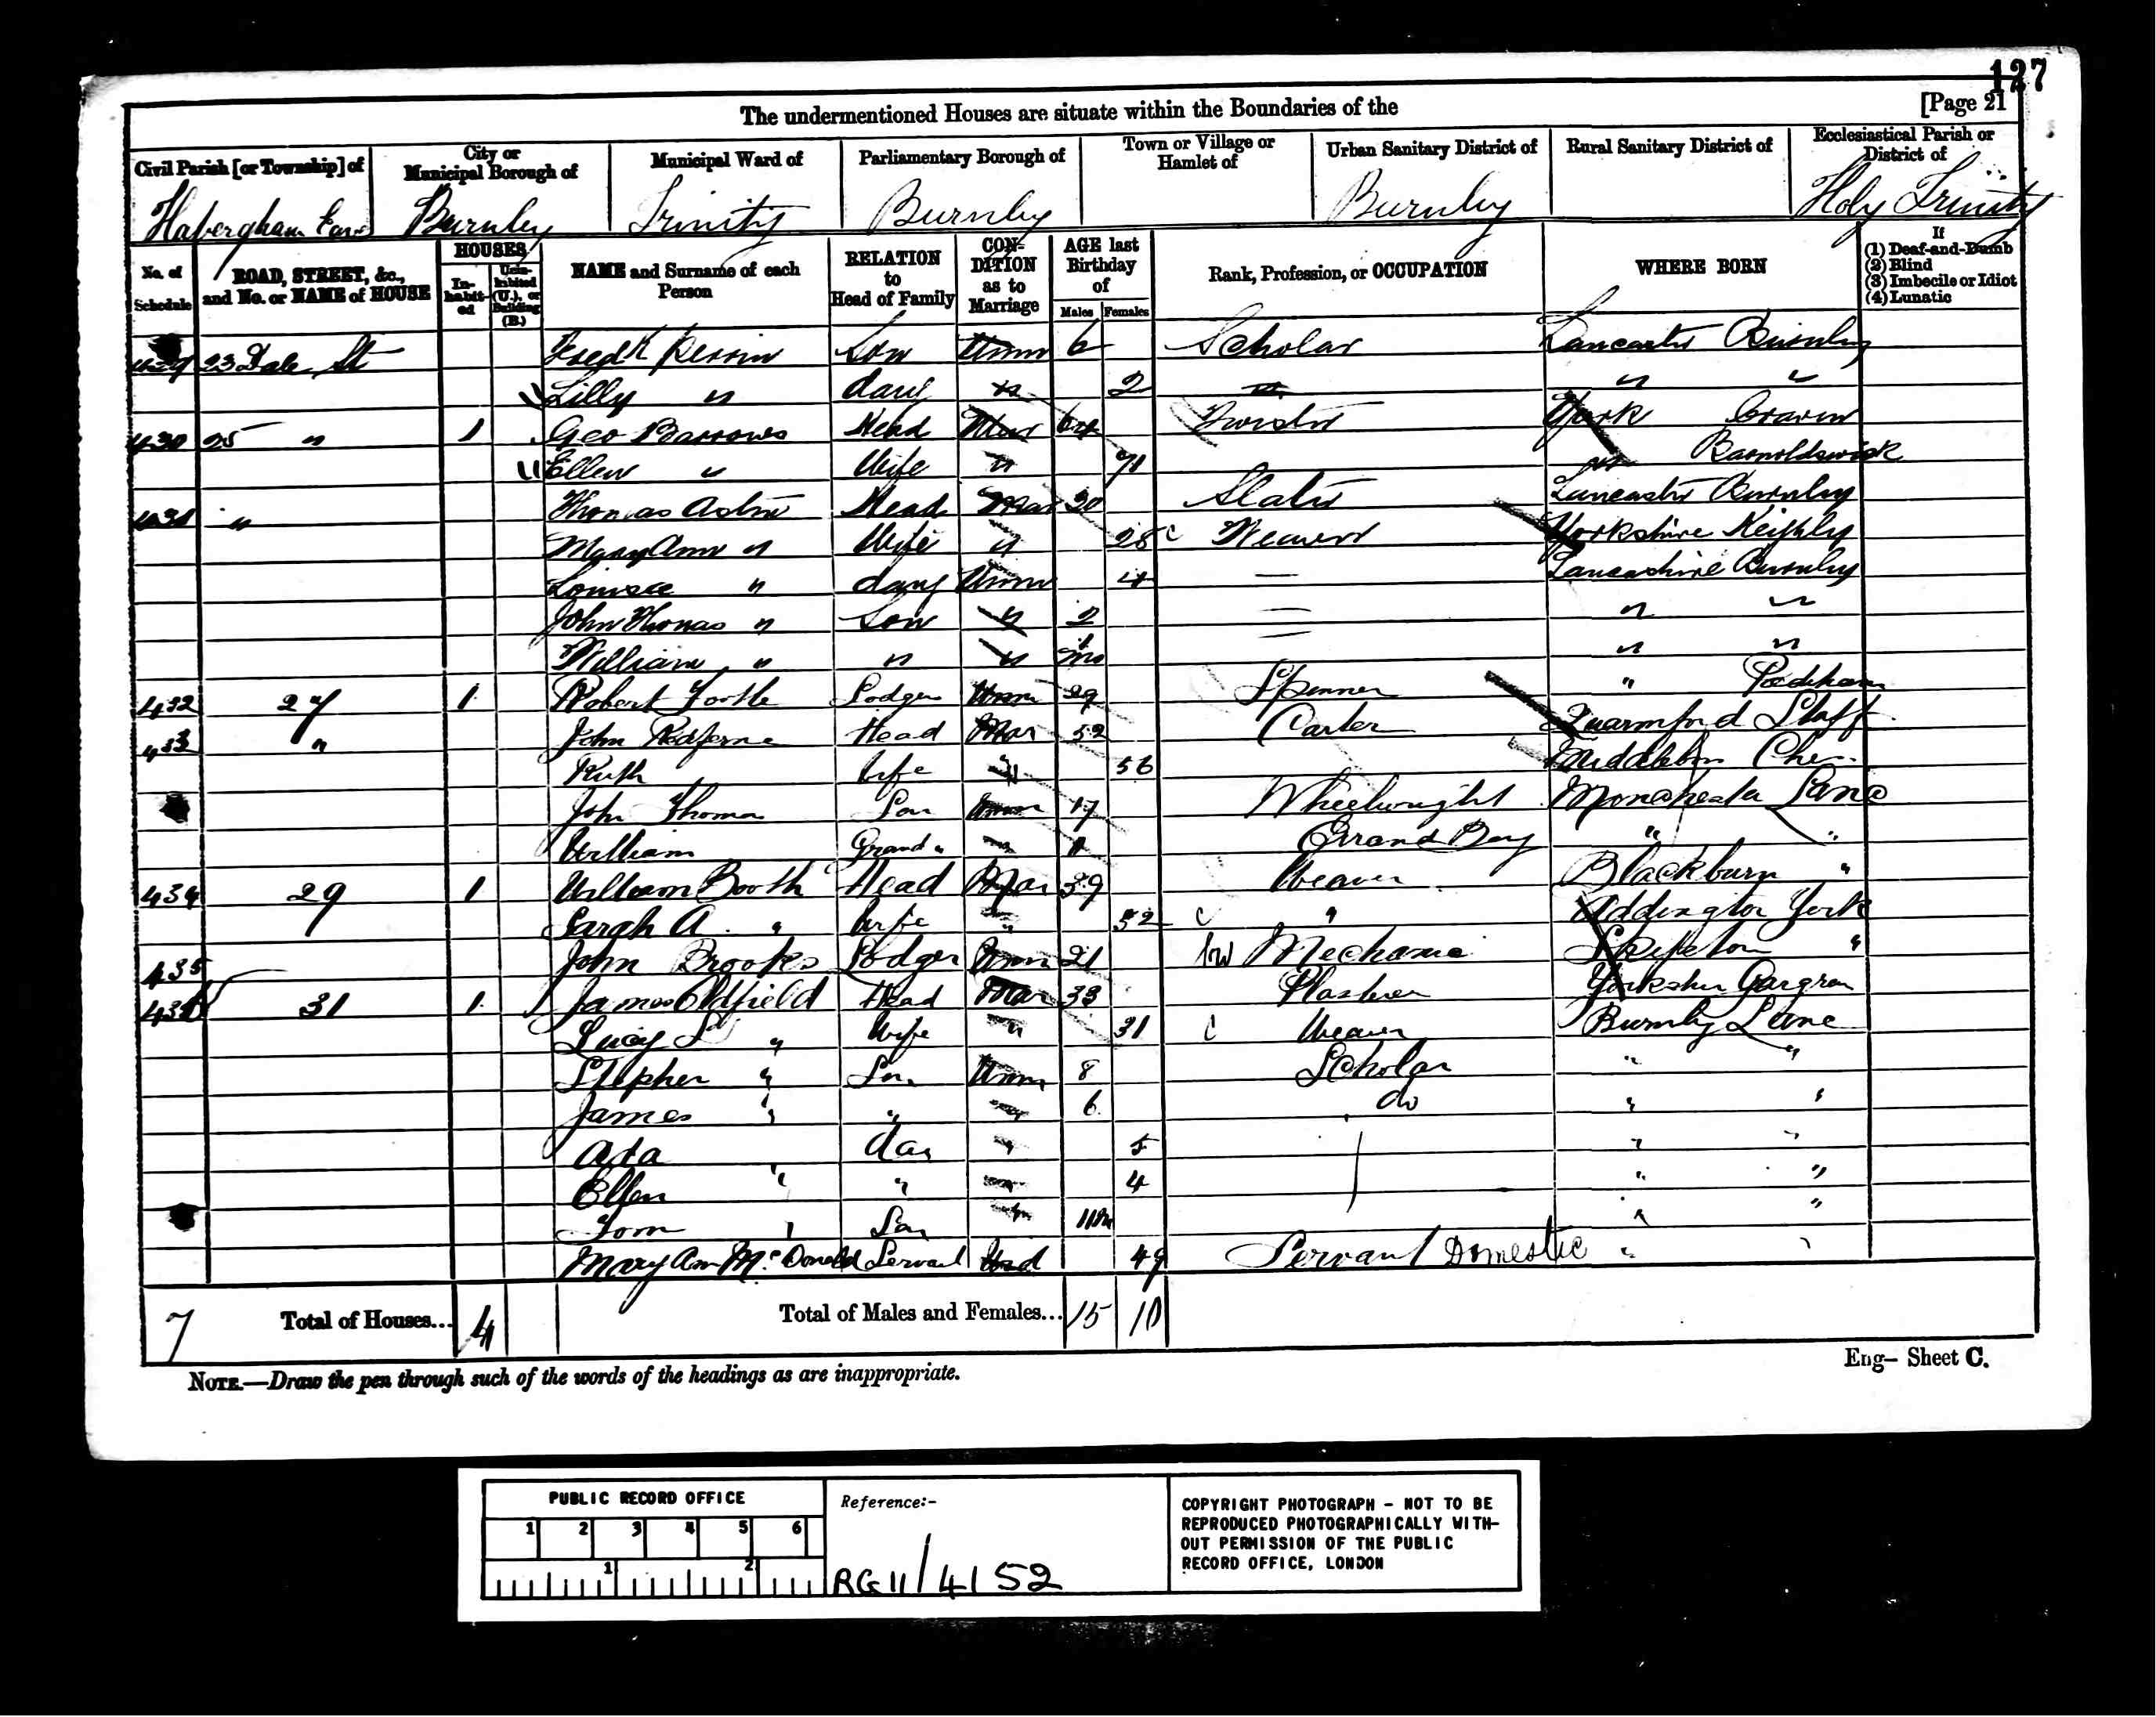 127
The undermentioned Houses are situate within the Boundaries of the
[Page 21
Civil Parish [or Township] of
City or Municipal Borough of
Municipal Ward of
Parliamentary Borough of
Town or Village or Hamlet of
Urban Sanitary District of
Rural Sanitary District of
Ecclesiastical Parish or District of
Habergham Eaves
Burnley
Trinity
Burnley
Burnley
Holy Trinity
No. of Schedule
ROAD, STREET, &c., and No. or NAME of HOUSE
HOUSES
In-habit-ed
Unin-habited (U.), or Building (B.)
NAME and Surname of each Person
RELATION to Head of Family
CON-DITION as to Marriage
AGE last Birthday of
Males
Females
Rank, Profession, or OCCUPATION
WHERE BORN
If
(1) Deaf-and-Dumb
(2) Blind
(3) Imbecile or Idiot
(4) Lunatic
429 23 Dale St Fredk Son Unm 6 Scholar Lancaster Burnley
Lilly " daug " 2 " " "
430 25 " 1 Geo Barrows Head Mar 64 York Craven
Ellen " Wife " 71 Barnoldswick
431 " Thomas Head Mar 30 Slater Lancaster Burnley
Mary Ann " Wife " 28 C Weaver Yorkshire Keighley
Louisa " daug Unm 4 — Lancashire Burnley
John Thomas " Son " 2 — " "
William " " " mo — " "
432 27 1 Robert Lodger Unm 29 Spinner " Padiham
433 " John Redferne Head Mar 52 Carter Quarnford Staff
Ruth Wife " 56 Ches.
John Thomas Son Unm 17 Wheelwright Lanc
William Grand " " Errand Boy " "
434 29 1 William Booth Head Mar 39 Weaver Blackburn "
Sarah A. " Wife " 32 C " Addington York
435 John Brooks Lodger Unm 21 Mechanic Skipton "
436 31 1 James Oldfield Head Mar 33 Plasterer Yorkshire
Lucy " Wife " 31 C Weaver Burnley Lanc
Stephen " Son Unm 8 Scholar " "
James " " " 6 do " "
Ada dau " 5 " "
Ellen " " " 4 " "
Tom " Son " 11m " "
Mary Ann McDonald Servant 49 Servant Domestic " "
7 Total of Houses... 4 Total of Males and Females... 15 10
NOTE.—Draw the pen through such of the words of the headings as are inappropriate.
Eng— Sheet C.
PUBLIC RECORD OFFICE
1 2 3 4 5 6
1 2
Reference:-
RG11/4152
COPYRIGHT PHOTOGRAPH - NOT TO BE
REPRODUCED PHOTOGRAPHICALLY WITH-
OUT PERMISSION OF THE PUBLIC
RECORD OFFICE, LONDON